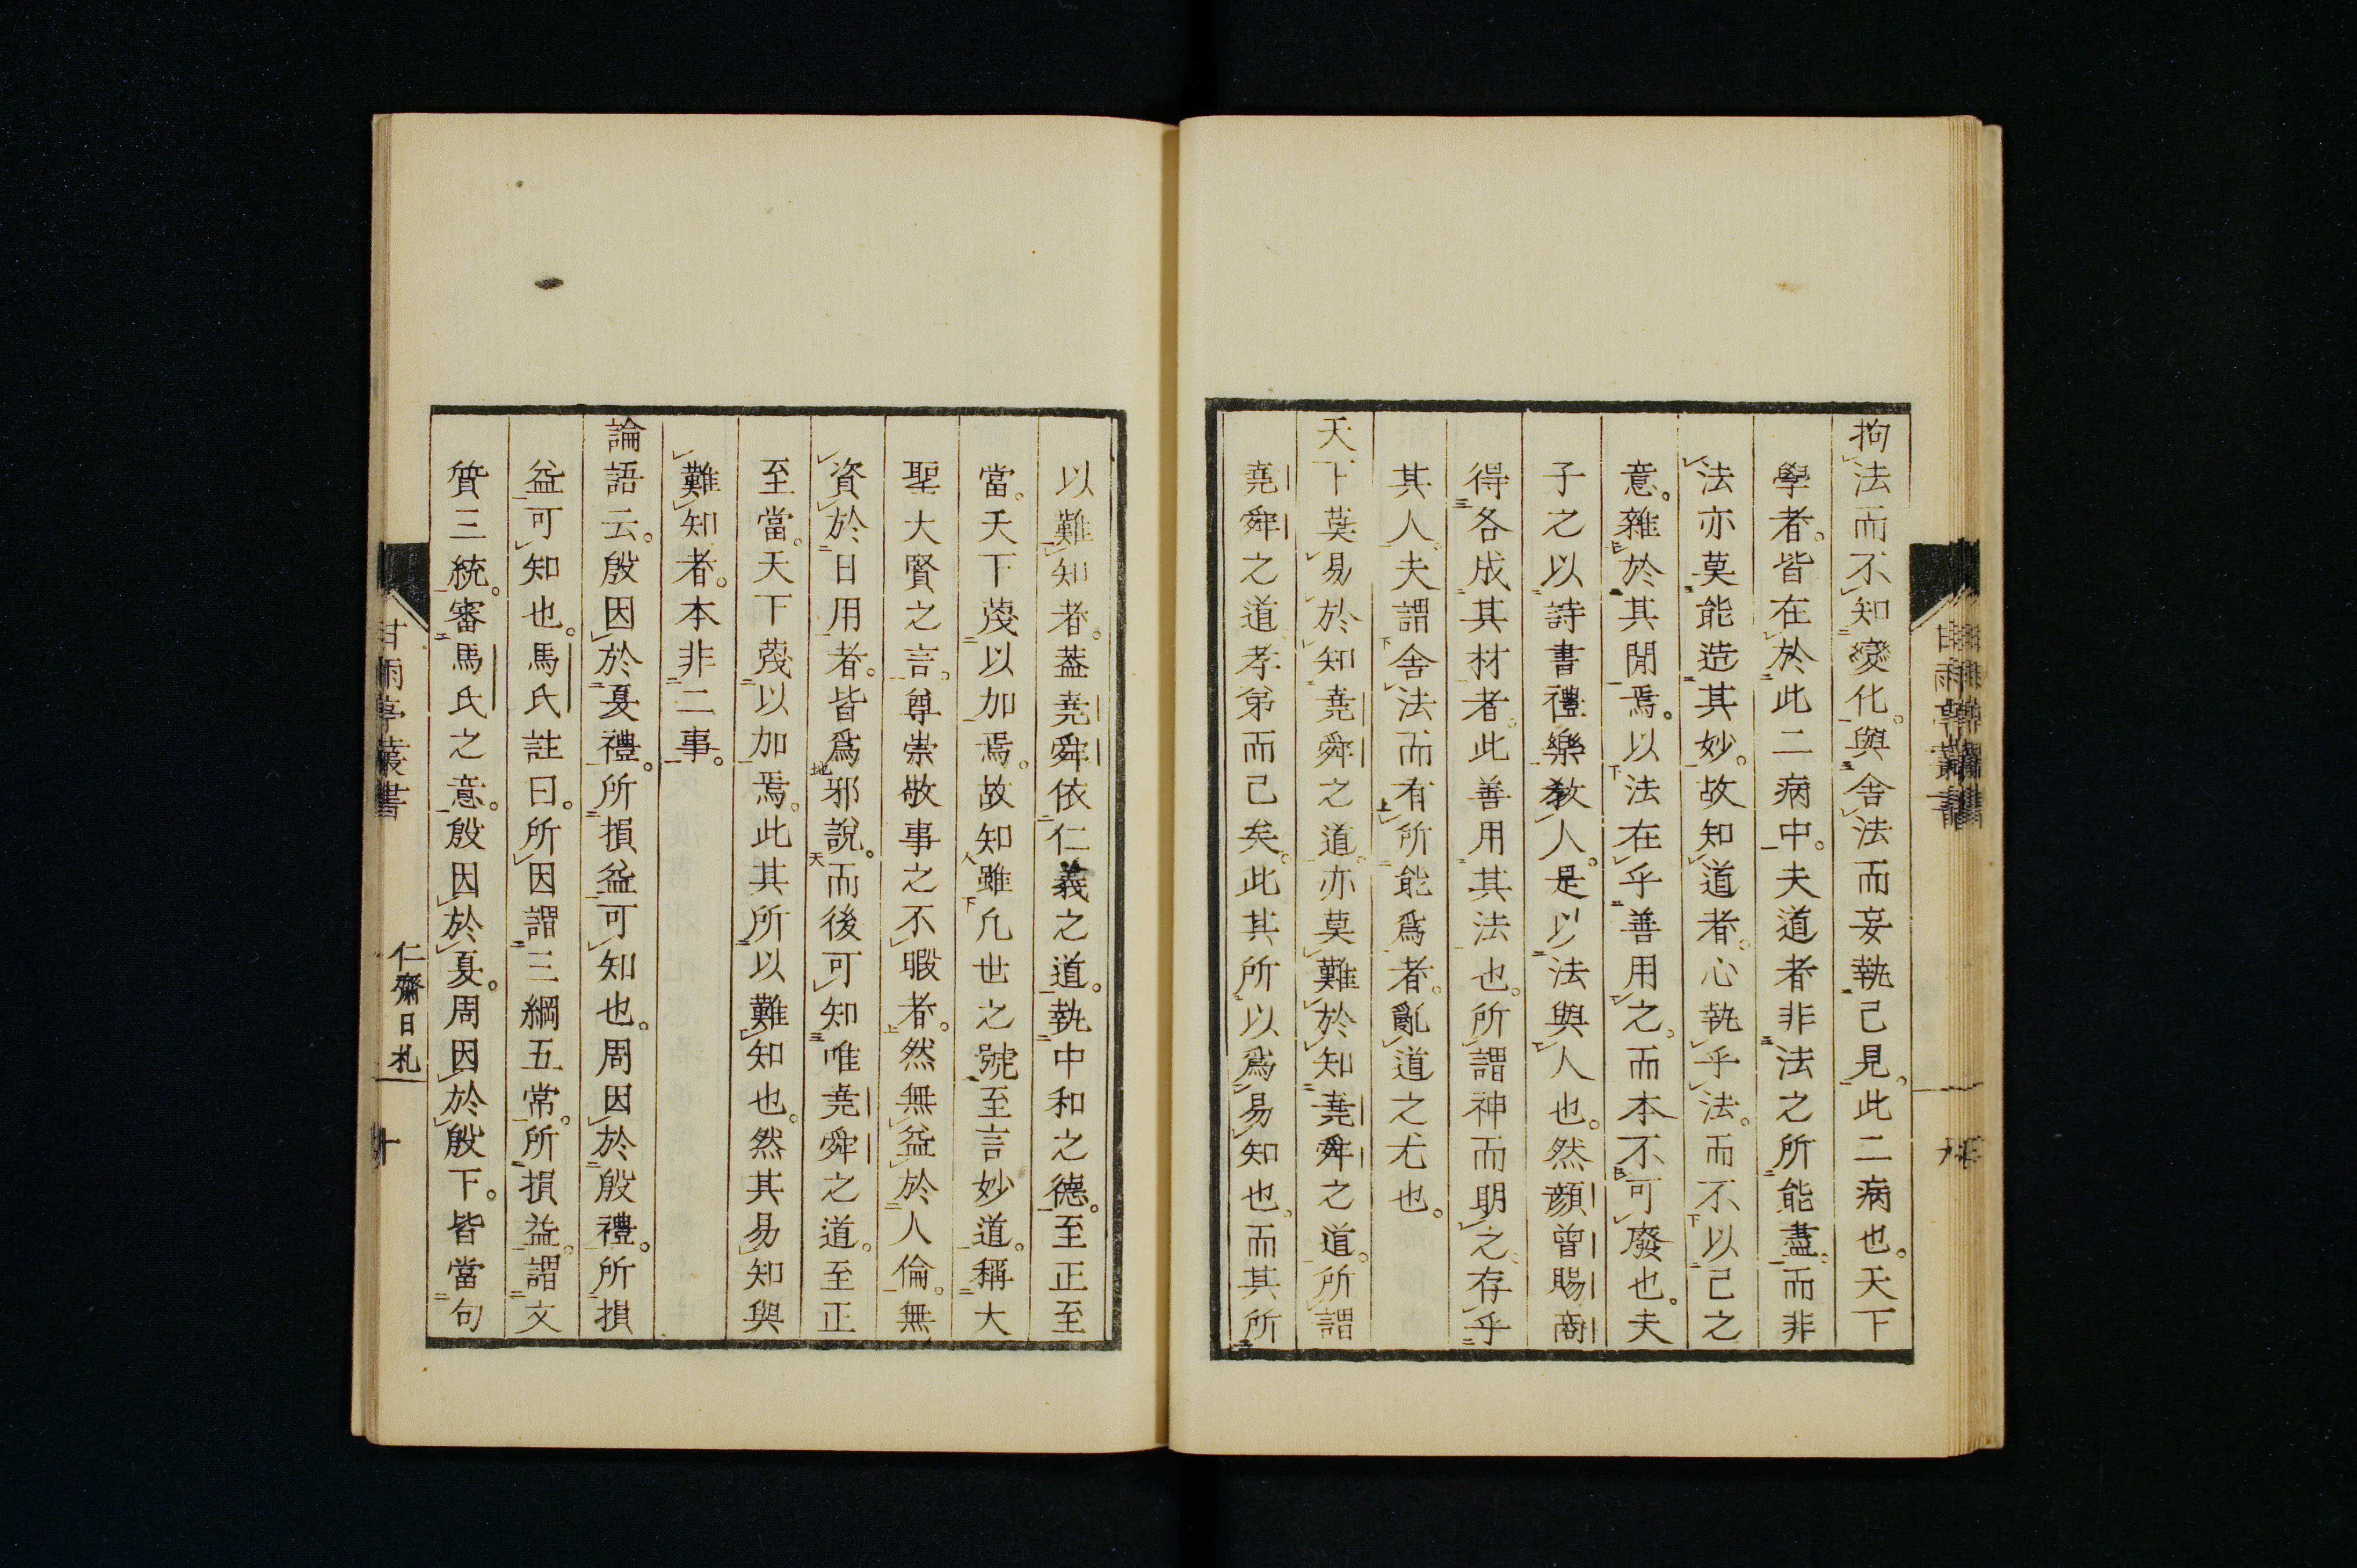 拘法而不知變化。與舍法而妄執己見。此二病也。天下
學者。皆在於此二病中。夫道者非法之所能盡。而非
法亦莫能造其妙。故知道者。心執乎法。而不以己之
意。雜於其閒焉。以法在乎善用之。而本不可廢也。夫
子之以詩書禮樂教人。是以法與人也。然顏曾賜商
得各成其材者。此善用其法也。所謂神而明之存乎
其人。夫謂舍法而有所能爲者。亂道之尤也。
天下莫易於知堯舜之道。亦莫難於知堯舜之道。所謂
堯舜之道。孝弟而已矣。此其所以爲易知也。而其所
以難知者。蓋堯舜依仁義之道。執中和之德。至正至
當。天下蔑以加焉。故知雖凢世之號至言妙道。稱大
聖大賢之言。尊崇敬事之不暇者。然無益於人倫。無
資於日用者。皆爲邪說。而後可知唯堯舜之道。至正
至當。天下蔑以加焉。此其所以難知也。然其易知與
難知者。本非二事。
論語云。殷因於夏禮。所損益可知也。周因於殷禮。所損
益可知也。馬氏註曰。所因謂三綱五常。所損益。謂文
質三統。審馬氏之意。殷因於夏。周因於殷下。皆當句
甘雨亭叢書
仁齋日札
十